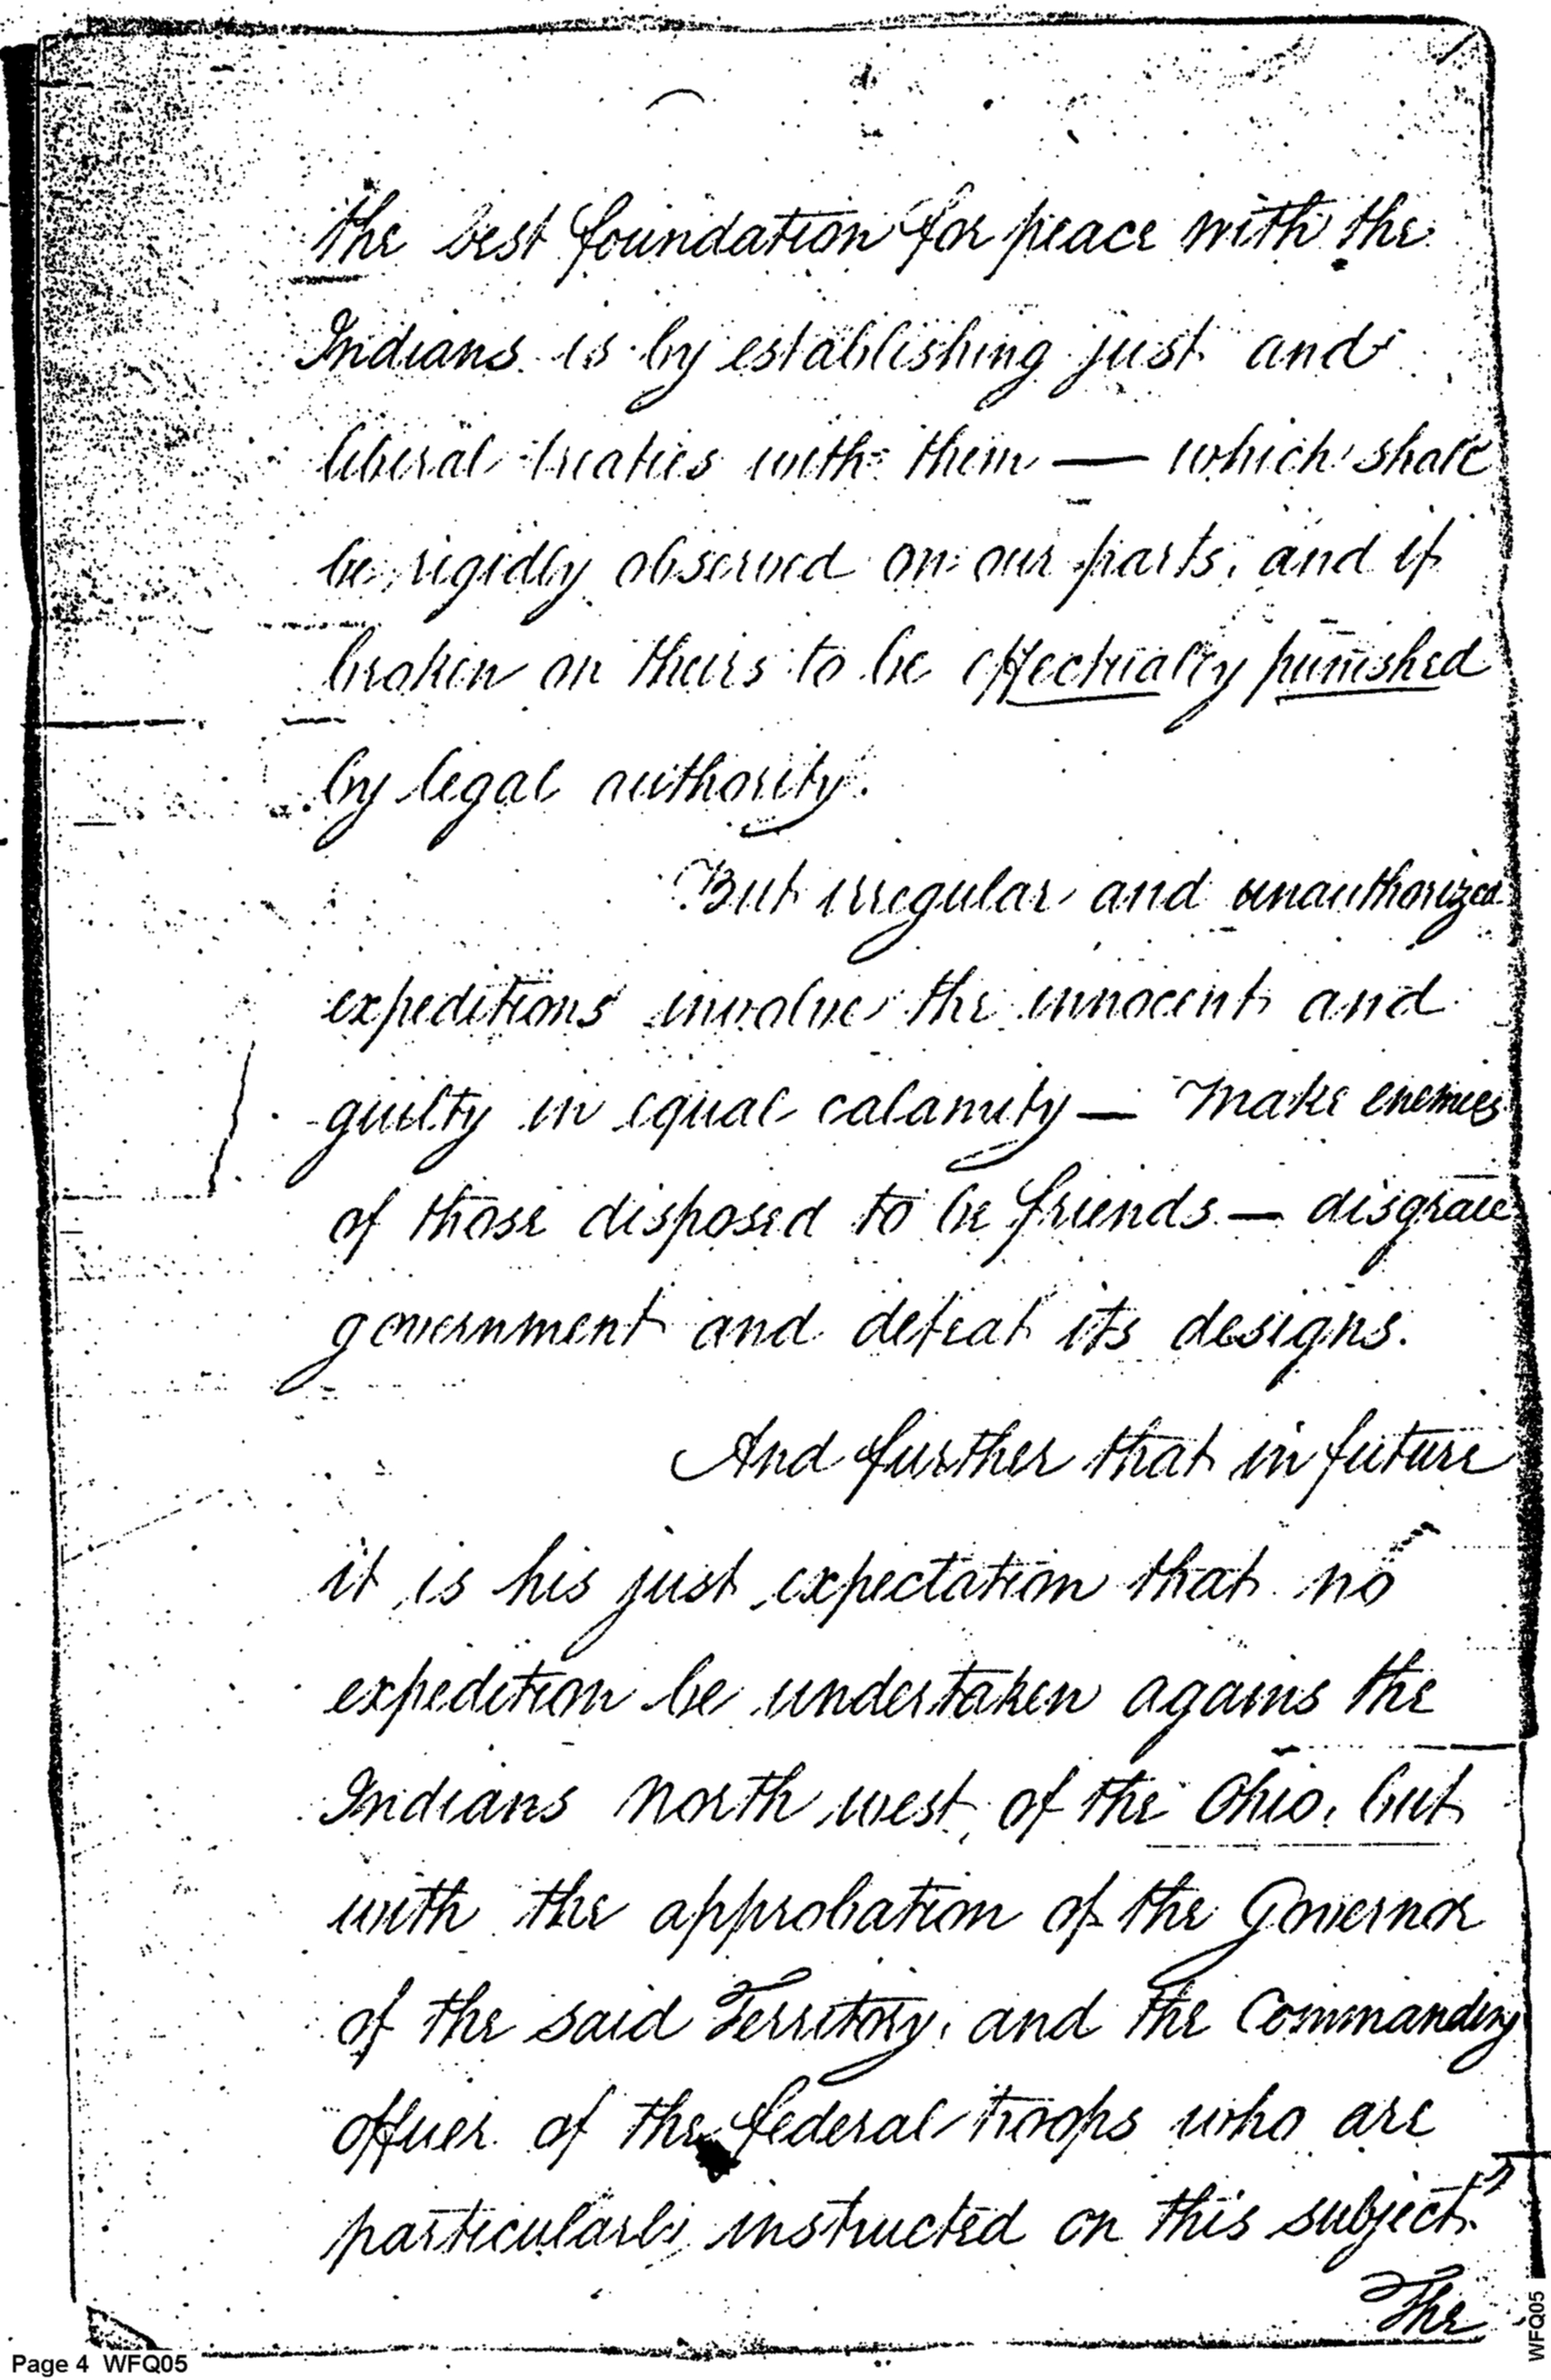 the best foundation for peace with the
Indians is by establishing just and
liberal treaties with them — which shall
be rigidly observed on our parts, and if
broken on theirs to be effectually punished
by legal authority.
But irregular and unauthorized
expeditions involve the innocent and
guilty in equal calamity — make enemies
of those disposed to be friends — disgrace
government and defeat its designs.
And further that in future
it is his just expectation that no
expedition be undertaken agains the
Indians north west of the Ohio, but
with the approbation of the Governor
of the said Territory, and the Commanding
officer of the federal troops who are
particularly instructed on this subject."
The
Page 4 WFQ05
WFQ05